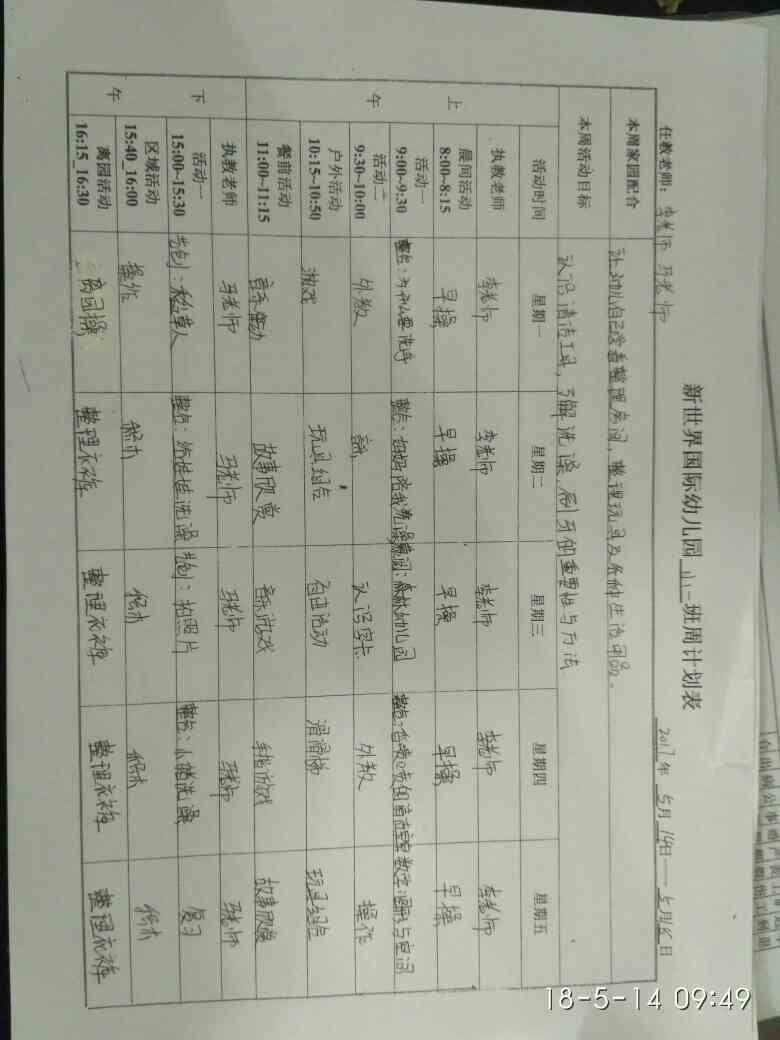 新世界国际幼儿园 小二 班周计划表
任教老师: 李老师 马老师 2017年 5月 14日——5月18日
本周家园配合 让幼儿自己学着整理房间,整理玩具及各种生活用品。
本周活动目标 认识清洁工具,了解洗澡、刷牙的重要性与方法
活动时间 星期一 星期二 星期三 星期四 星期五
上午
执教老师 李老师 李老师 李老师 李老师 李老师
晨间活动 8:00~8:15 早操 早操 早操 早操 早操
活动一 9:00~9:30 整合:为什么要洗手 整合:妈妈陪我洗澡 幼儿园 整合: 数学:图形与空间
活动二 9:30~10:00 外教 认识字卡 外教 操作
户外活动 10:15~10:50 游戏 玩具组合 自由活动 滑滑梯 玩具组合
餐前活动 11:00~11:15 音乐律动 故事欣赏 音乐游戏 手指游戏 故事欣赏
下午
执教老师 马老师 马老师 马老师 马老师 马老师
活动一 15:00~15:30 整合:给娃娃洗澡 拍照片 整合:小猪洗澡 复习
区域活动 15:40_16:00 操作 积木 积木 积木 积木
离园活动 16:15_16:30 离园操 整理衣裤 整理衣裤 整理衣裤 整理衣裤
18-5-14 09:49